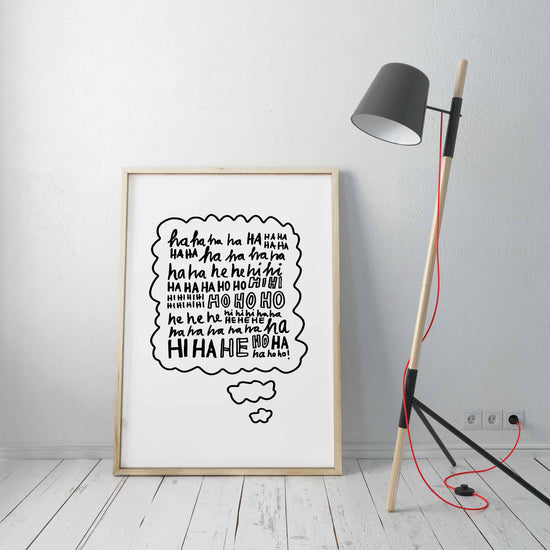 ha ha ha ha HA HA HA
HA-HA
HA HA ha ha ha ha
ha ha he he hi hi
HA HA HA HO HO HIHI
HIHIHIHI
HIHIHIHI HO HO HO
he he he hi hi hi ha ha
HE HE HE
ha ha ha ha ha ha ha
HI HA HE HO HA
ha ho ho!